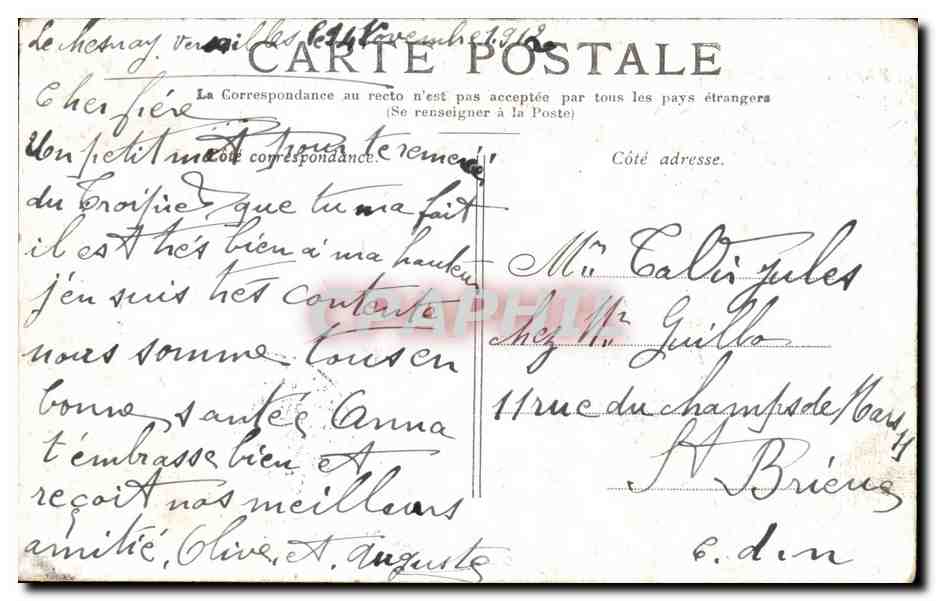 Le Chesnay Versailles le 24 Novembre 1912
CARTE POSTALE
La Correspondance au recto n'est pas acceptée par tous les pays étrangers
(Se renseigner à la Poste)
Cher frère
Un petit mot pour te remercie
Côté correspondance.
du Troipied que tu ma fait
il est trés bien à ma hauteur
j'en suis tres contente
nous somme tous en
bonne santée Anna
t'embrasse bien et
reçoit nos meilleurs
amitié, Olive et Auguste
Côté adresse.
Mr Jules
chez Mr Guillo
11 rue du champs de Mars 11
St Brieuc
c. d. n
CPAPHIL